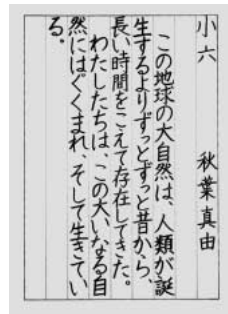 小六　秋葉真由
この地球の大自然は、人類が誕
生するよりずっとずっと昔から、
長い時間をこえて存在してきた。
わたしたちは、この大いなる自
然にはぐくまれ、そして生きてい
る。